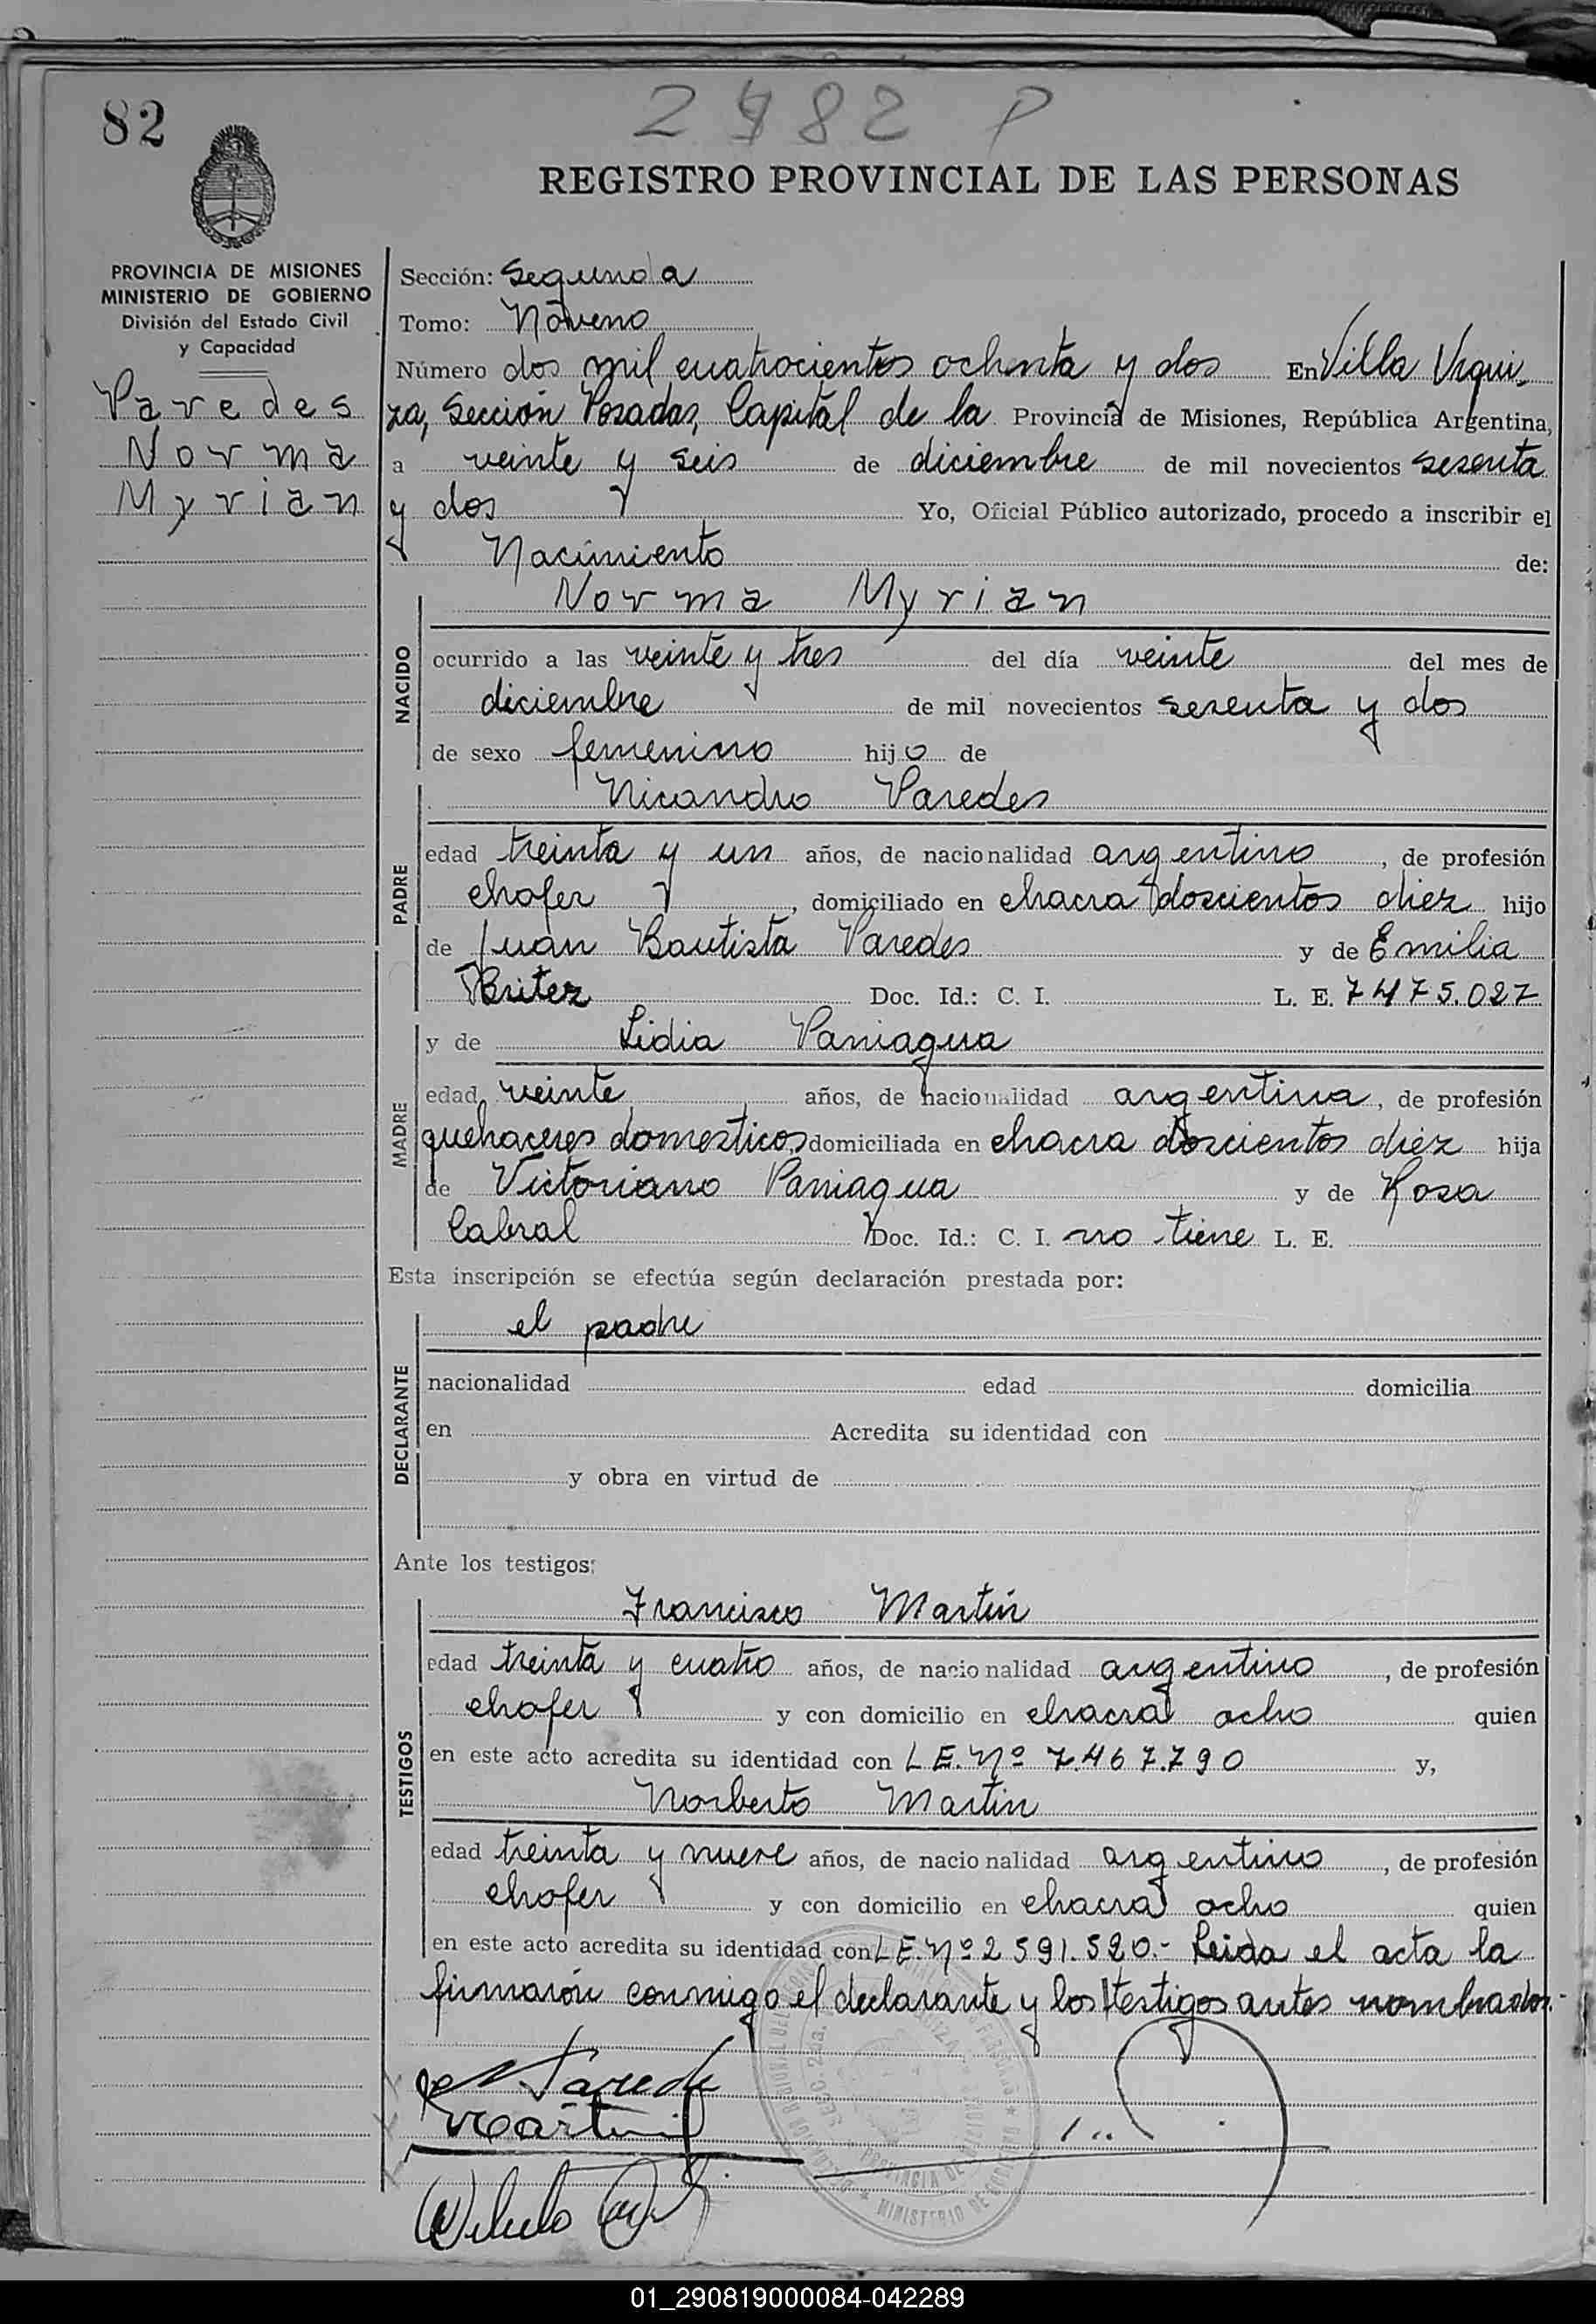 82
2482 P
REGISTRO PROVINCIAL DE LAS PERSONAS
PROVINCIA DE MISIONES
MINISTERIO DE GOBIERNO
División del Estado Civil
y Capacidad
Paredes
Norma
Myrian
Sección: Segunda
Tomo: Noveno
Número dos mil cuatrocientos ochenta y dos En Villa Urqui-
za, Sección Posadas, Capital de la Provincia de Misiones, República Argentina,
a veinte y seis de diciembre de mil novecientos sesenta
y dos Yo, Oficial Público autorizado, procedo a inscribir el
Nacimiento de:
NACIDO
Norma Myrian
ocurrido a las veinte y tres del día veinte del mes de
diciembre de mil novecientos sesenta y dos
de sexo femenino hijo de
PADRE
Nicandro Paredes
edad treinta y un años, de nacionalidad argentino, de profesión
chofer, domiciliado en chacra doscientos diez hijo
de Juan Bautista Paredes y de Emilia
Britez Doc. Id.: C. I. L. E. 7475.027
MADRE
y de Lidia Paniagua
edad veinte años, de nacionalidad argentina, de profesión
quehaceres domesticos domiciliada en chacra doscientos diez hija
de Victoriano Paniagua y de Rosa
Cabral Doc. Id.: C. I. no tiene L. E.
Esta inscripción se efectúa según declaración prestada por:
DECLARANTE
el padre
nacionalidad edad domicilia
en Acredita su identidad con
y obra en virtud de
Ante los testigos:
TESTIGOS
Francisco Martin
edad treinta y cuatro años, de nacionalidad argentino, de profesión
chofer y con domicilio en chacra ocho quien
en este acto acredita su identidad con L E. Nº 7.467.790 y,
Norberto Martin
edad treinta y nueve años, de nacionalidad argentino, de profesión
chofer y con domicilio en chacra ocho quien
en este acto acredita su identidad con L E. Nº 2 591.520.- Leida el acta la
firmarón conmigo el declarante y los testigos antes nombrados.-
Paredes
Martin
01_290819000084-042289